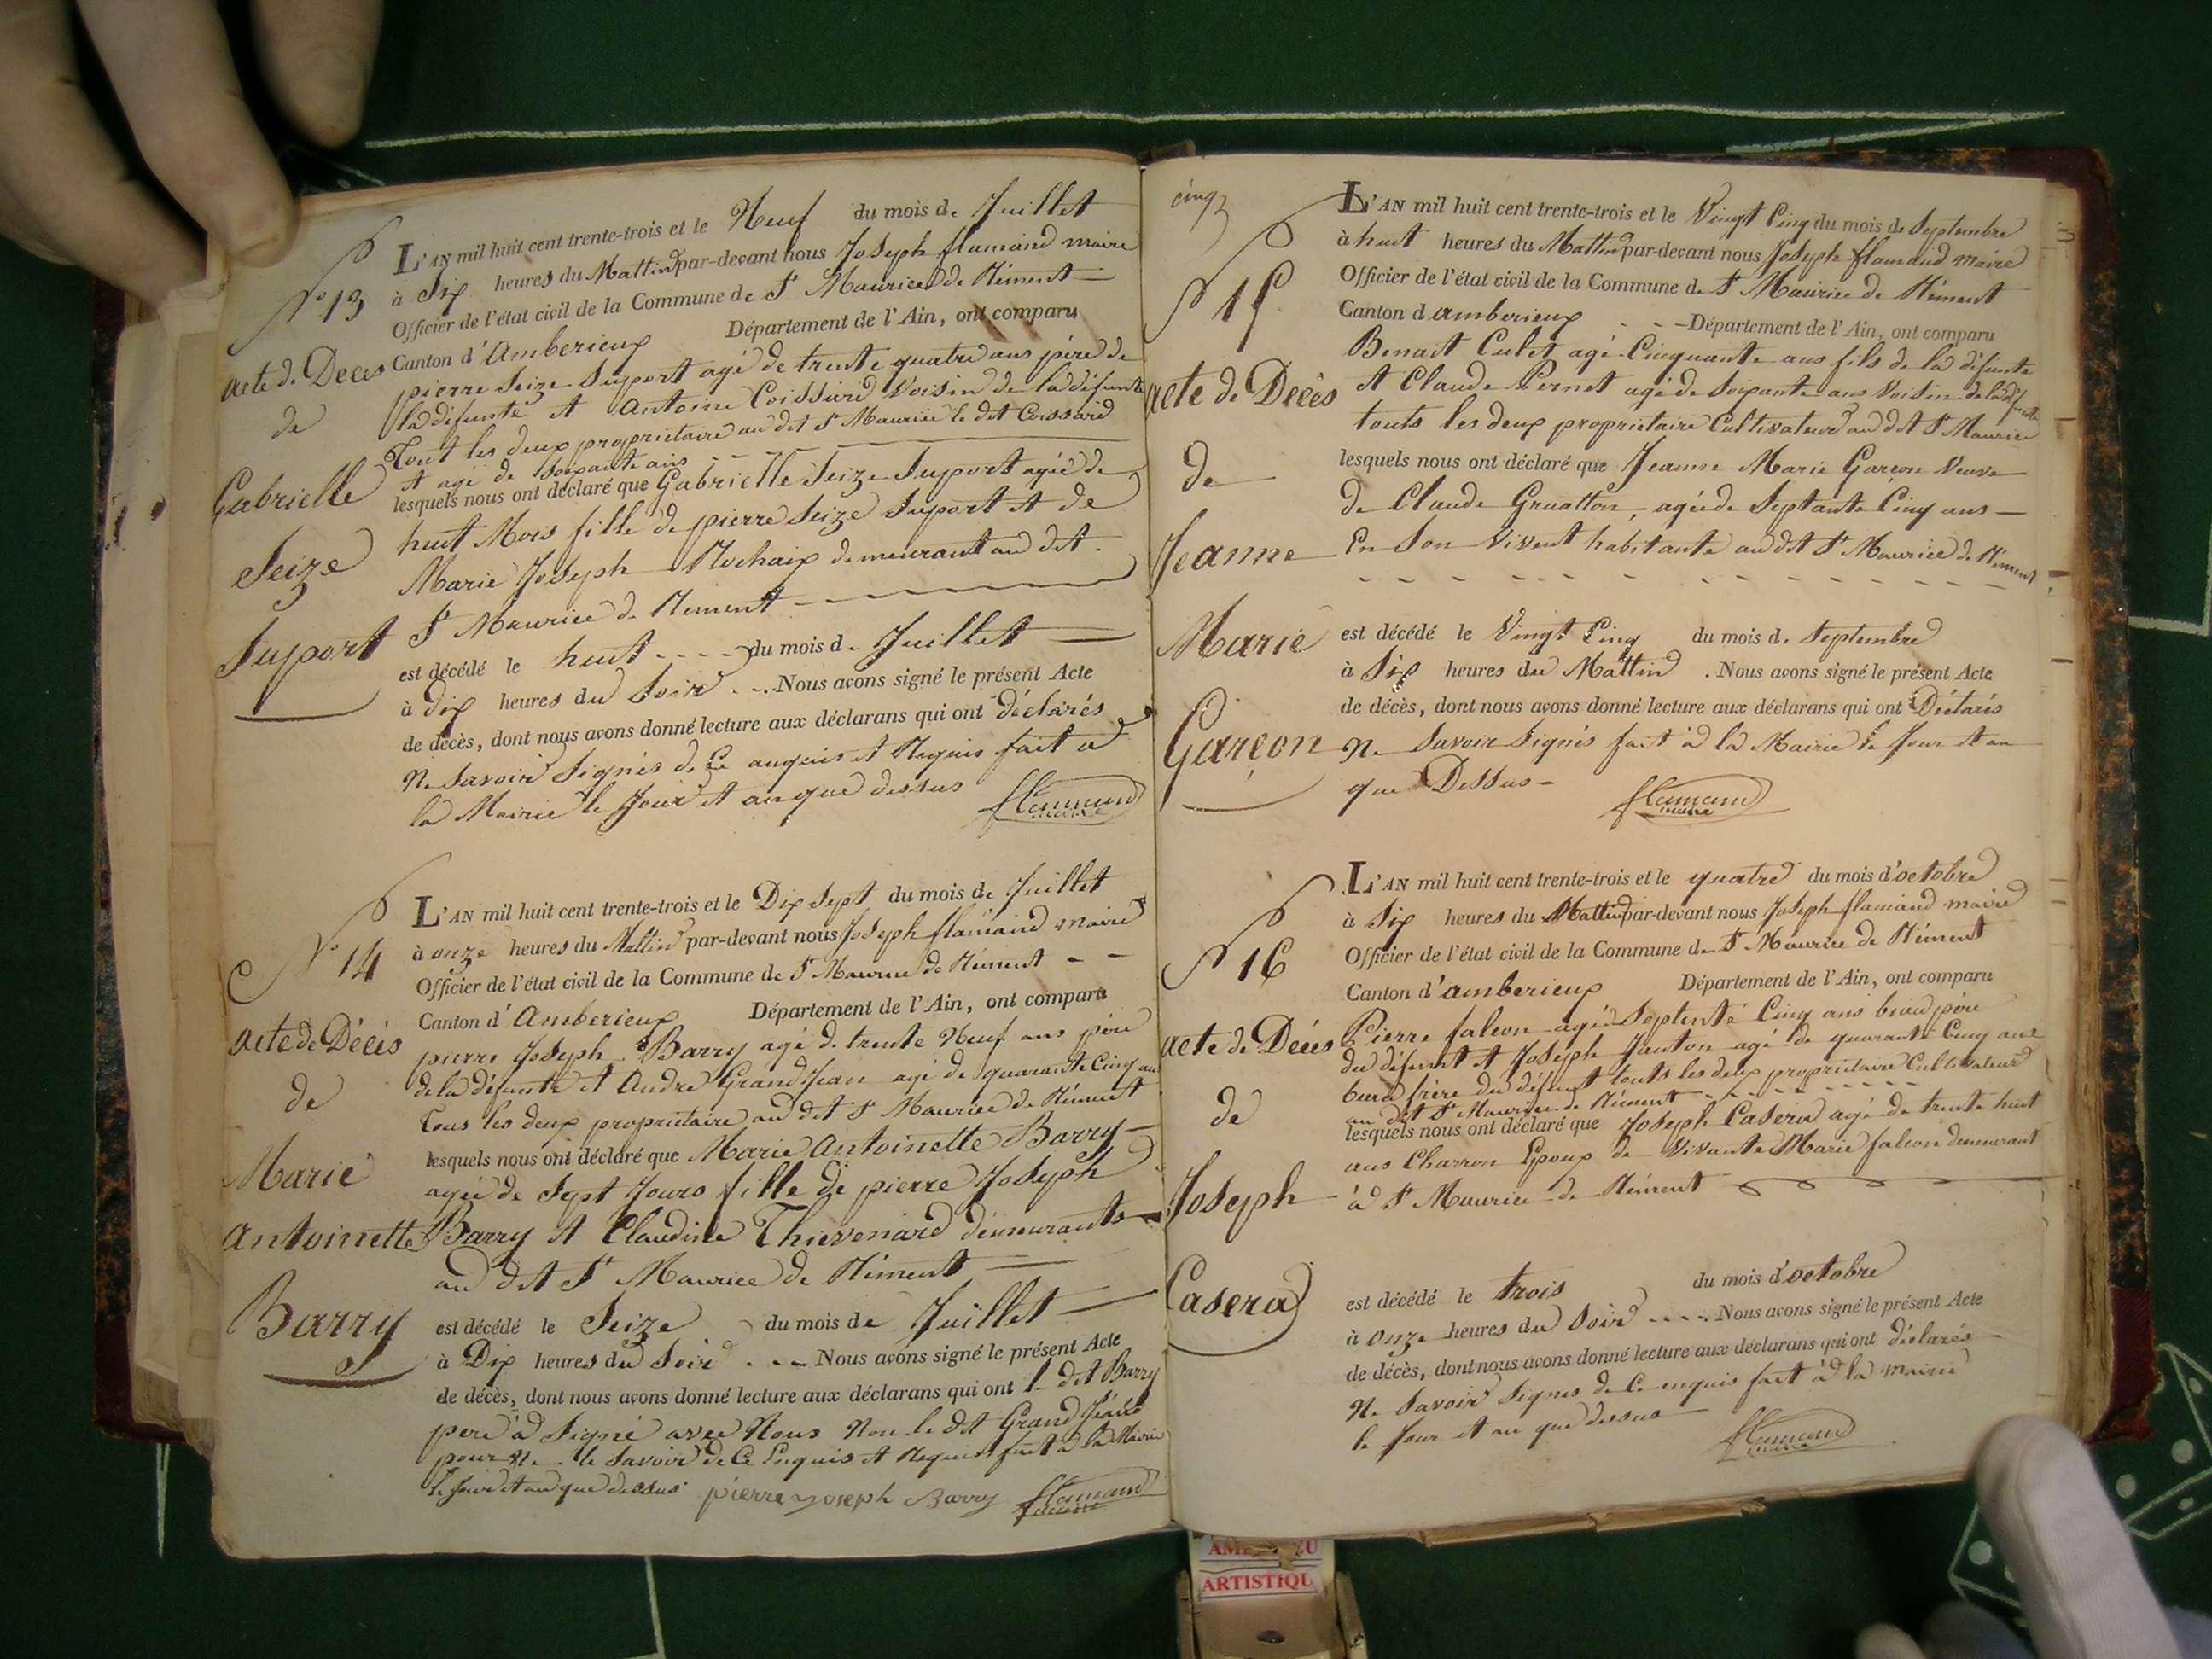 N° 13
acte de Deces
de
Gabrielle
Seize
Suport
L'AN mil huit cent trente-trois et le Neuf du mois de Juillet
à Six heures du Mattin par-devant nous Joseph flamand maire
Officier de l'état civil de la Commune de St Maurice de Rément
Canton d'Amberieux Département de l'Ain, ont comparu
pierre Seize Suport agé de trente quatre ans père de
la défunte et Antoine Coissard Voisin de la défunte
Tout les deux propriétaire au dit St Maurice le dit Coissard
et agé de Soixante ans
lesquels nous ont déclaré que Gabrielle Seize Suport agée de
huit Mois fille de pierre Seize Suport et de
Marie Joseph Rochaix demeurant au dit
St Maurice de Rement
est décédé le huit du mois de Juillet
à dix heures du Soir Nous avons signé le présent Acte
de décès, dont nous avons donné lecture aux déclarans qui ont déclarés
Ne Savoir Signés de Ce anquis et Requis fait a
la Mairie le Jour et an que dessus flamand maire
N° 14
acte de Décès
de
Marie
Antoinette
Barry
L'AN mil huit cent trente-trois et le Dix Sept du mois de Juillet
à onze heures du Mattin par-devant nous Joseph flamand maire
Officier de l'état civil de la Commune de St Maurice de Rément
Canton d'Amberieux Département de l'Ain, ont comparu
pierre Joseph Barry agé de trente Neuf ans père
de la défunte et André Grand Jean agé de quarante Cinq ans
Tous les deux propriétaire au dit St Maurice de Rément
lesquels nous ont déclaré que Marie Antoinette Barry
agée de Sept Jours fille de pierre Joseph
Barry et Claudine Thievenard demeurants
au dit St Maurice de Rément
est décédé le Seize du mois de Juillet
à Dix heures du Soir Nous avons signé le présent Acte
de décès, dont nous avons donné lecture aux déclarans qui ont le dit Barry
père à Signé avec Nous Non le dit Grand Jean
pour Ne le Savoir de Ce Enquis et Requis fait à la Mairie
le Jour et an que dessus pierre joseph Barry flamand maire
cinq
N° 15
acte de Décès
de
Jeanne
Marie
Garçon
L'AN mil huit cent trente-trois et le Vingt Cinq du mois de Septembre
à huit heures du Mattin par-devant nous Joseph flamand maire
Officier de l'état civil de la Commune de St Maurice de Rément
Canton d'amberieux Département de l'Ain, ont comparu
Benait Culet agé Cinquante ans fils de la défunte
et Claude Pernet agé de Soixante ans Voisin de la défunte
touts les deux propriétaire Cultivateur au dit St Maurice
lesquels nous ont déclaré que Jeanne Marie Garçon Veuve
de Claude Gruatton, agée de Septante Cinq ans
En Son Vivent habitante au dit St Maurice de Rément
est décédé le Vingt Cinq du mois de Septembre
à Six heures du Mattin. Nous avons signé le présent Acte
de décès, dont nous avons donné lecture aux déclarans qui ont Déclarés
Ne Savoir Signés fait à la Mairie le Jour et an
que Dessus flamand maire
N° 16
acte de Décès
de
Joseph
Casera
L'AN mil huit cent trente-trois et le quatre du mois d'octobre
à Six heures du Mattin par-devant nous Joseph flamand maire
Officier de l'état civil de la Commune de St Maurice de Rément
Canton d'amberieux Département de l'Ain, ont comparu
Pierre falcon agé Septente Cinq ans beau père
du défunt et Joseph Janton agé de quarante Cinq ans
beau frère du défunt touts les deux propriétaire Cultivateur
au dit St Maurice de Rément
lesquels nous ont déclaré que Joseph Casera agé de trente huit
ans Charron Epoux de Vivante Marie falcon demeurant
à St Maurice de Rément
est décédé le trois du mois d'octobre
à onze heures du Soir Nous avons signé le présent Acte
de décès, dont nous avons donné lecture aux déclarans qui ont déclarés
Ne Savoir Signés de Ce enquis fait à la mairie
le Jour et an que dessus flamand maire
ARTISTIQU